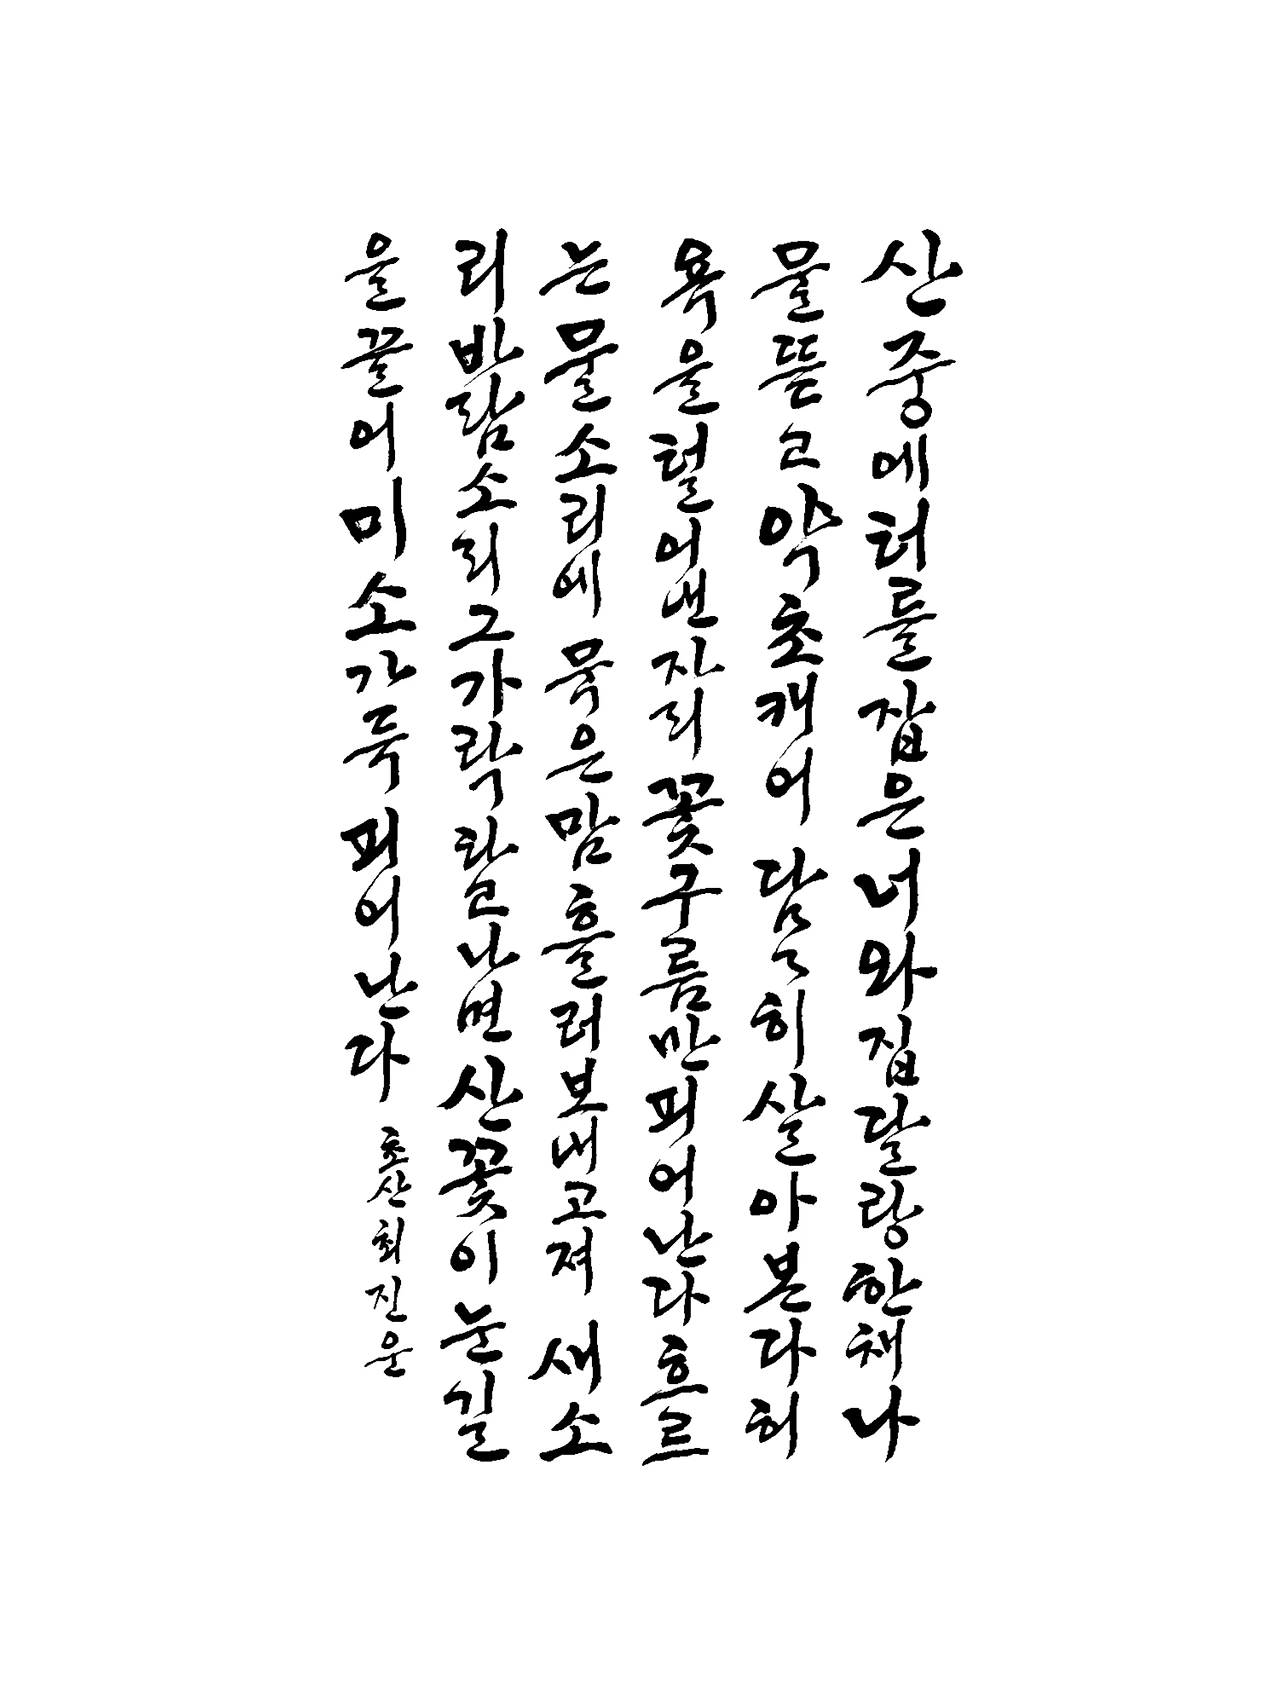 산중에터를잡은너와집달랑한채나
물뜯고약초캐어 담담히살아본다허
욕을털어낸자리꽃구름만피어난다흐르
는물소리에 묵은맘흘러보내고져 새소
리바람소리그가락타고나면산꽃이눈길
을끌어미소가득피어난다
초산최진윤